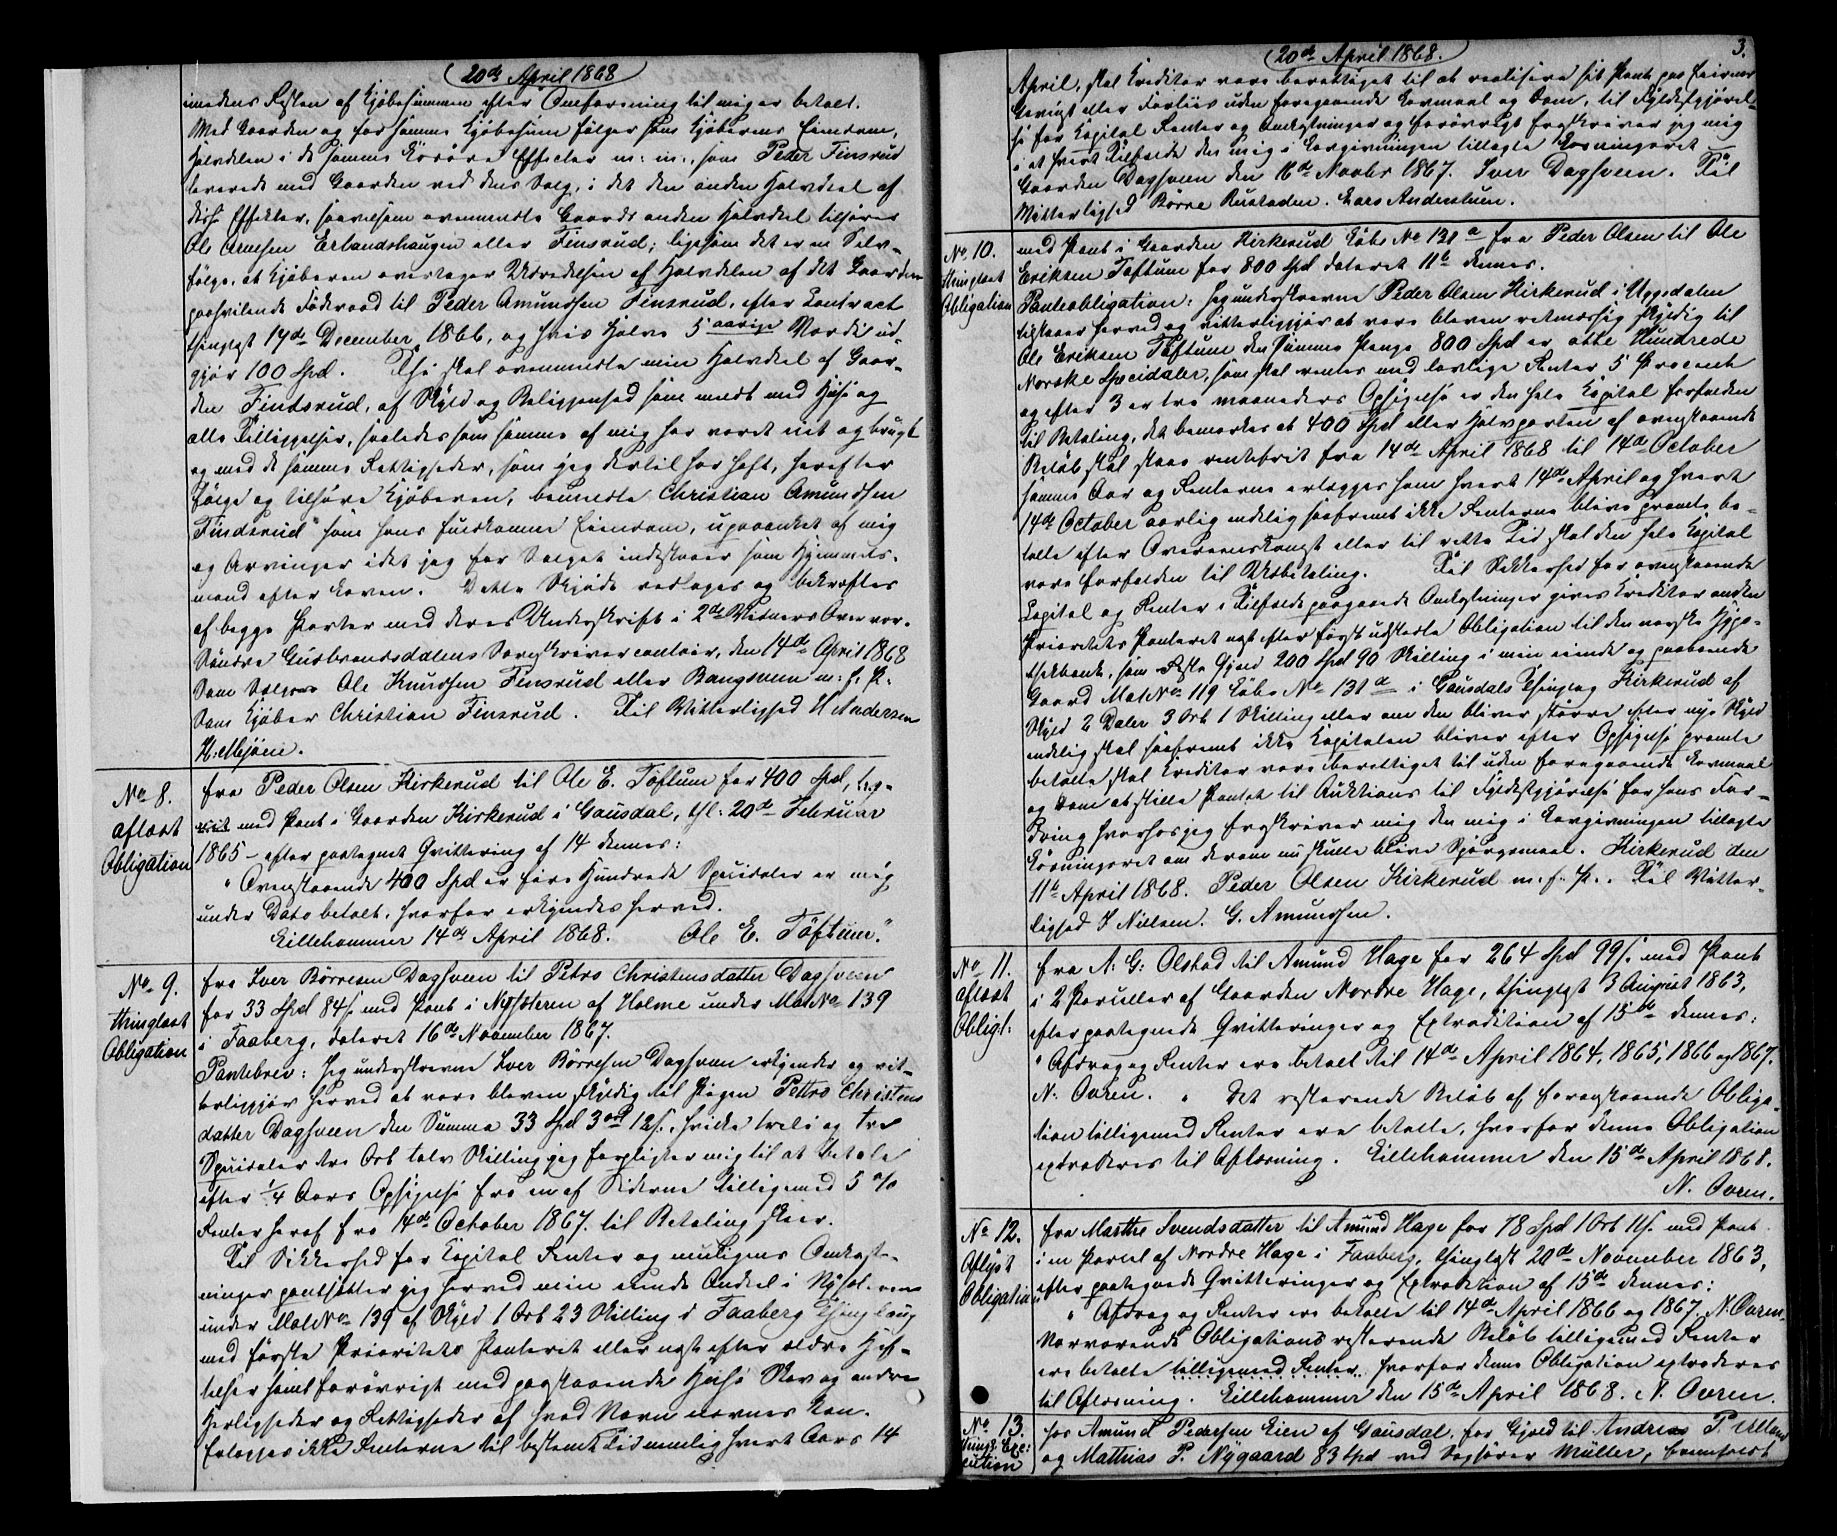 20de April 1868
imedens Resten af Kjøbesummen efter Omforening til mig er betalt.
Med Gaarden og for samme Kjøbesum følger som Kjøberens Eiendom,
Halvdelen i de samme Løsøre Effecter m: m:, som Peder Finsrud
leverede med Gaarden ved dens Salg, i det den anden Halvdeel af
disse Effekter, saavelsom ovenmeldte Gaards anden Halvdeel tilhører
Ole Arnesen Erlandshaugen eller Finsrud; ligesom det er en Selv-
følge, at Kjøberen overtager Udredelsen af Halvdelen af det Gaarden
paahvilende Föderaad til Peder Amundsen Finsrud, efter Contract
thinglyst 17de December 1866, og hvis halve 5 aarige Værdi ud-
gjør 100 Spd. Thi skal ovenmeldte min Halvdeel af Gaar-
den Findsrud, af Skyld og Beliggenhed som meldt med Huse og
alle Tilliggelser, saaledes som samme af mig har været eiet og brugt
og med de samme Rettigheder, som jeg dertil har haft, herefter
følge og tilhøre Kjøberen, bemeldte Christian Amundsen
Findsrud som hans fuldkomne Eiendom, upaaanket af mig
og Arvinger idet jeg for Salget indestaaer som Hjemmels-
mand efter Loven. Dette Skjøde vedtages og bekræftes
af begge Parter med deres Underskrift i 2de Vidners Overvær.
Søndre Gudbrandsdalens Sorenskrivercontoir, den 14de April 1868
Som Sælger Ole Knudsen Finsrud eller Bangsveen m: f. P:
Som Kjøber Christian Finsrud. Til Vitterlighed H Andersen
H. Mjøen.
No 8.
aflæst
Obligation
fra Peder Olsen Kirkerud til Ole E. Toftum for 400 Spd,
med Pant i Gaarden Kirkerud i Gausdal, thl: 20de Februar
1865 – efter paategnet Qvittering af 14 dennes:
" Ovenstaaende 400 Spd er fire Hundrede Speidaler er mig
under Dato betalt, hvorfor erkjendes herved.
Lillehammer 14de April 1868. Ole E. Toftum."
No 9.
thinglæst
Obligation
fra Iver Børresen Dagsveen til Petro Christensdatter Dagsveen
for 33 Spd 84 s. med Pant i Nysæteren af Holme under Mat No 139
i Faaberg, dateret 16de November 1867.
Pantebrev: Jeg underskrevne Iver Børresen Dagsveen erkjender og vit-
terliggjør herved at være bleven skyldig til Pigen Pettro Christens
datter Dagsveen den Summa 33 Spd 3 ort 12 s., hvilke treti og tre
Speidaler tre Ort tolv Skilling jeg forpligter mig til at betale
efter 1/4 Aars Opsigelse fra en af Siderne tilligemed 5 %
Renter heraf fra 14de October 1867 til Betaling skeer.
Til Sikkerhed for Kapital Renter og muligens Omkost-
ninger pantsætter jeg herved min eiende Andeel i Nysæteren
under Mat No 139 af Skyld 1 Ort 23 Skilling i Faaberg Thinglaug
med første Prioritets Panteret eller næst efter ældre Hef-
telser samt forøvrigt med paastaaende Huse Skov og andre
Herligheder og Rettigheder af hvad Navn nævnes kan.
Erlægges ikke Renterne til bestemt Tid nemlig hvert Aars 14
20de April 1868.
3.
April, skal Kreditor være berettiget til at realisere sit Pant paa
uden foregaaende Lovmaal og Dom, til Fyldestgjørel-
se for Kapital Renter og Omkostninger og forøvrigt fraskriver jeg mig
i et hvert Tilfælde den mig i Lovgivningen tillagte Løsningsret
Gaarden Dagsveen den 16de Novbr 1867. Iver Dagsveen. Til
Vitterlighed Børre Rustaden. Lars Anderstuen.
No 10.
thinglæst
Obligation
med Pant i Gaarden Kirkerud Løbe No 131 a fra Peder Olsen til Ole
Eriksen Toftum for 800 Spd dateret 11te dennes.
Panteobligation: Jeg underskrevne Peder Olsen Kirkerud i
tilstaaer herved og vitterliggjør at være bleven retmæssig skyldig til
Ole Eriksen Toftum den Summa Penge 800 Spd er otte Hundrede
Norske Specidaler, som skal rentes med lovlige Renter 5 Procent
og efter 3 er tre maaneders Opsigelse er den hele Kapital forfalden
til Betaling, det bemærkes at 400 Spd eller Halvparten af ovenstaaende
Beløb skal staae rentefrit fra 14de April 1868 til 14de October
samme Aar og Renterne erlægges som hvert 14de April og hvert
14de October aarlig endelig saafremt ikke Renterne blive promte be-
talte efter Overeenskomst eller til rette Tid skal den hele Kapital
være forfalden til Udbetaling. Til Sikkerhed for ovenstaaende
Kapital og Renter i Tilfælde paagaaende Omkostninger gives Kreditor anden
Prioritets Panteret næst efter først udstedte Obligation til den norske Hypo-
thekbank, som Reste Gjæld 200 Spd 90 Skilling i min eiende og paaboende
Gaard Mat No 119 Løbe No 131 a i Gausdals Thinglag Kirkerud af
Skyld 2 Daler 3 Ort 1 Skilling eller om den bliver større efter nye Skyld
endelig skal saafremt ikke Kapitalen bliver efter Opsigelse promte
betalte skal Creditor være berettiget til uden foregaaende Lovmaal
og Dom at stille Pantet til Auktions til Fyldestgjørelse for hans For-
dring hvorhos jeg fraskriver mig den mig i Lovgivningen tillagte
Løsningsret om derom nu skulle blive Spørgsmaal. Kirkerud den
11te April 1868. Peder Olsen Kirkerud m. f. P.. Til Vitter-
lighed J Nielsen. G. Amundsen.
No 11.
aflæst
Obligt:
fra A: G: Olstad til Amund Hage for 264 Spd 99 s. med Pant
i 2 Parceller af Gaarden Nordre Hage, thinglyst 3 August 1863,
efter paategnede Qvitteringer og Extradition af 15de dennes:
" Afdrag og Renter ere betalt til 14de April 1864, 1865, 1866 og 1867.
N. Ovren. " Det resterende Beløb af foranstaaende Obliga-
tion tilligemed Renter ere betalte, hvorfor denne Obligation
extraderes til Aflæsning. Lillehammer den 15de April 1868.
N. Ovren.
No 12.
Aflyst
Obligation
fra Marthe Svendsdatter til Amund Hage for 78 Spd 1 Ort 11 s. med Pant
i en Parcel af Nordre Hage i Faaberg, thinglyst 20de November 1863,
efter paategnede Qvitteringer og Extradition af 15de dennes:
" Afdrag og Renter ere betalte til 14de April 1866 og 1867, N. Ovren.
Nærværende Obligations resterende Beløb tilligemed Renter
ere betalte tilligemed Renter hvorfor denne Obligation extraderes
til Aflæsning. Lillehammer den 15de April 1868. N. Ovren.
No 13.
Exe-
cution
hos Amund Pedersen Lien af Gausdal, for Gjæld til Andreas P. Ulland
og Mathias P. Nygaard 83 Spd ved Sagfører Müller, fremlæst